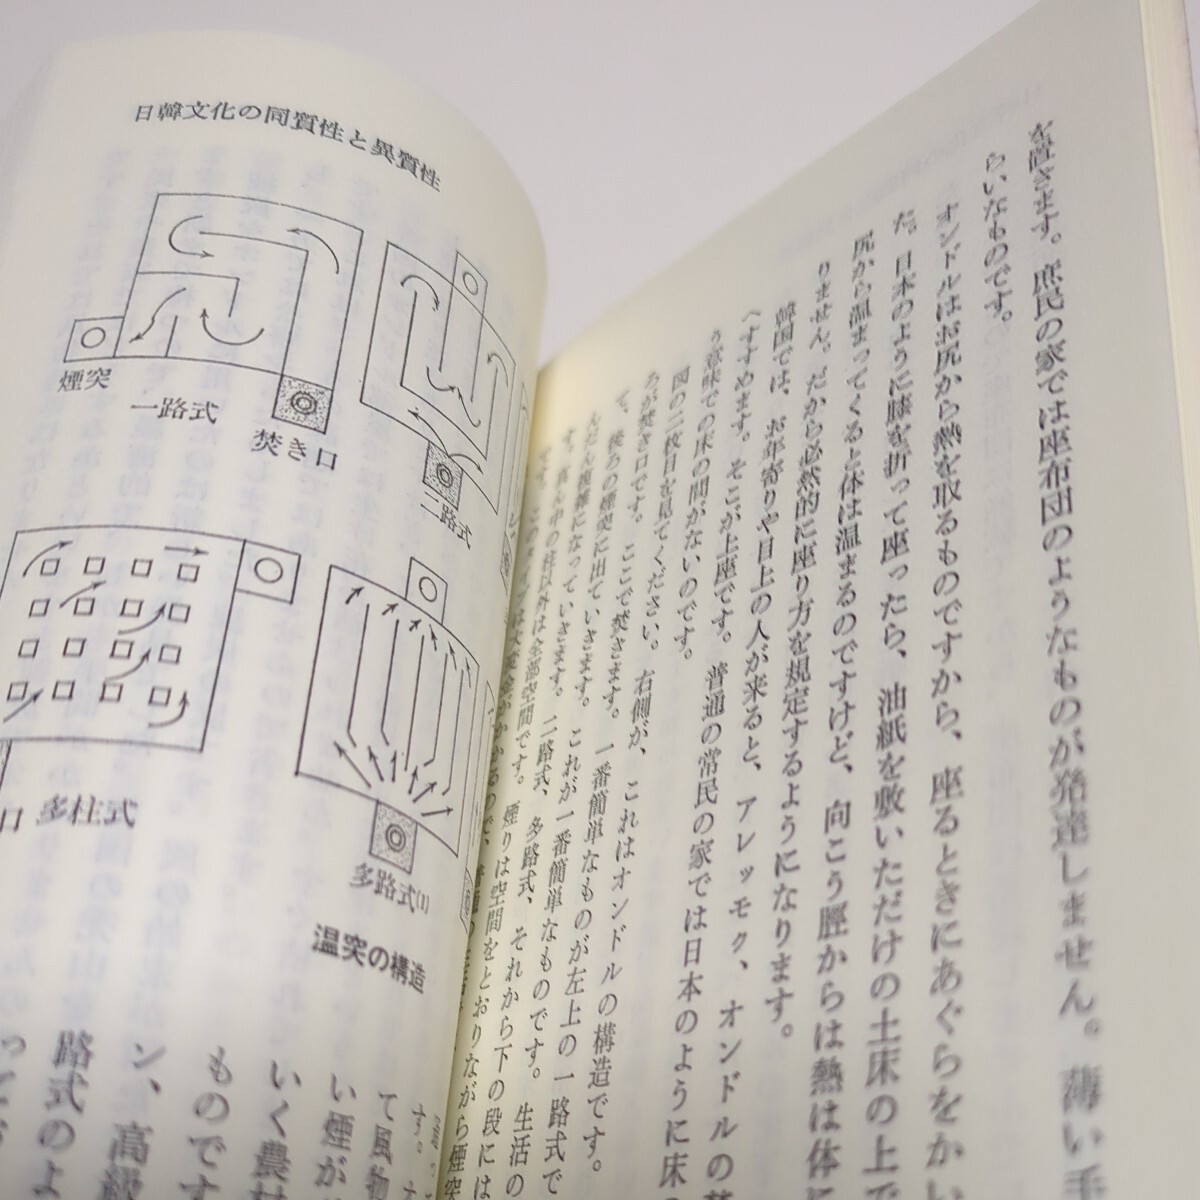 を置きます。庶民の家では座布団のようなものが発達しません。薄い手
らいなものです。
オンドルはお尻から熱を取るものですから、座るときにあぐらをかい
た。日本のように膝を折って座ったら、油紙を敷いただけの土床の上で
尻から温まってくると体は温まるのですけど、向こう脛からは熱は体に
りません。だから必然的に座り方を規定するようになります。
韓国では、お年寄りや目上の人が来ると、アレッモク、オンドルの
へすすめます。そこが上座です。普通の常民の家では日本のように床の
う意味での床の間がないのです。
図の二枚目を見てください。右側が、これはオンドルの構造です。
あが焚き口です。ここで焚きます。一番簡単なものが左上の一路式で
て、後ろの煙突に出ていきます。これが一番簡単なものです。生活の
んだん複雑になっていきます。二路式、多路式、それから下の段には
す。真ん中の柱以外は全部空間です。煙りは空間をとおりながら煙突
日韓文化の同質性と異質性
煙突
一路式
焚き口
二路式
口
多柱式
多路式(1)
温突の構造
て風物
い煙が
いく農村
ものです
ン、高級
路式のよ